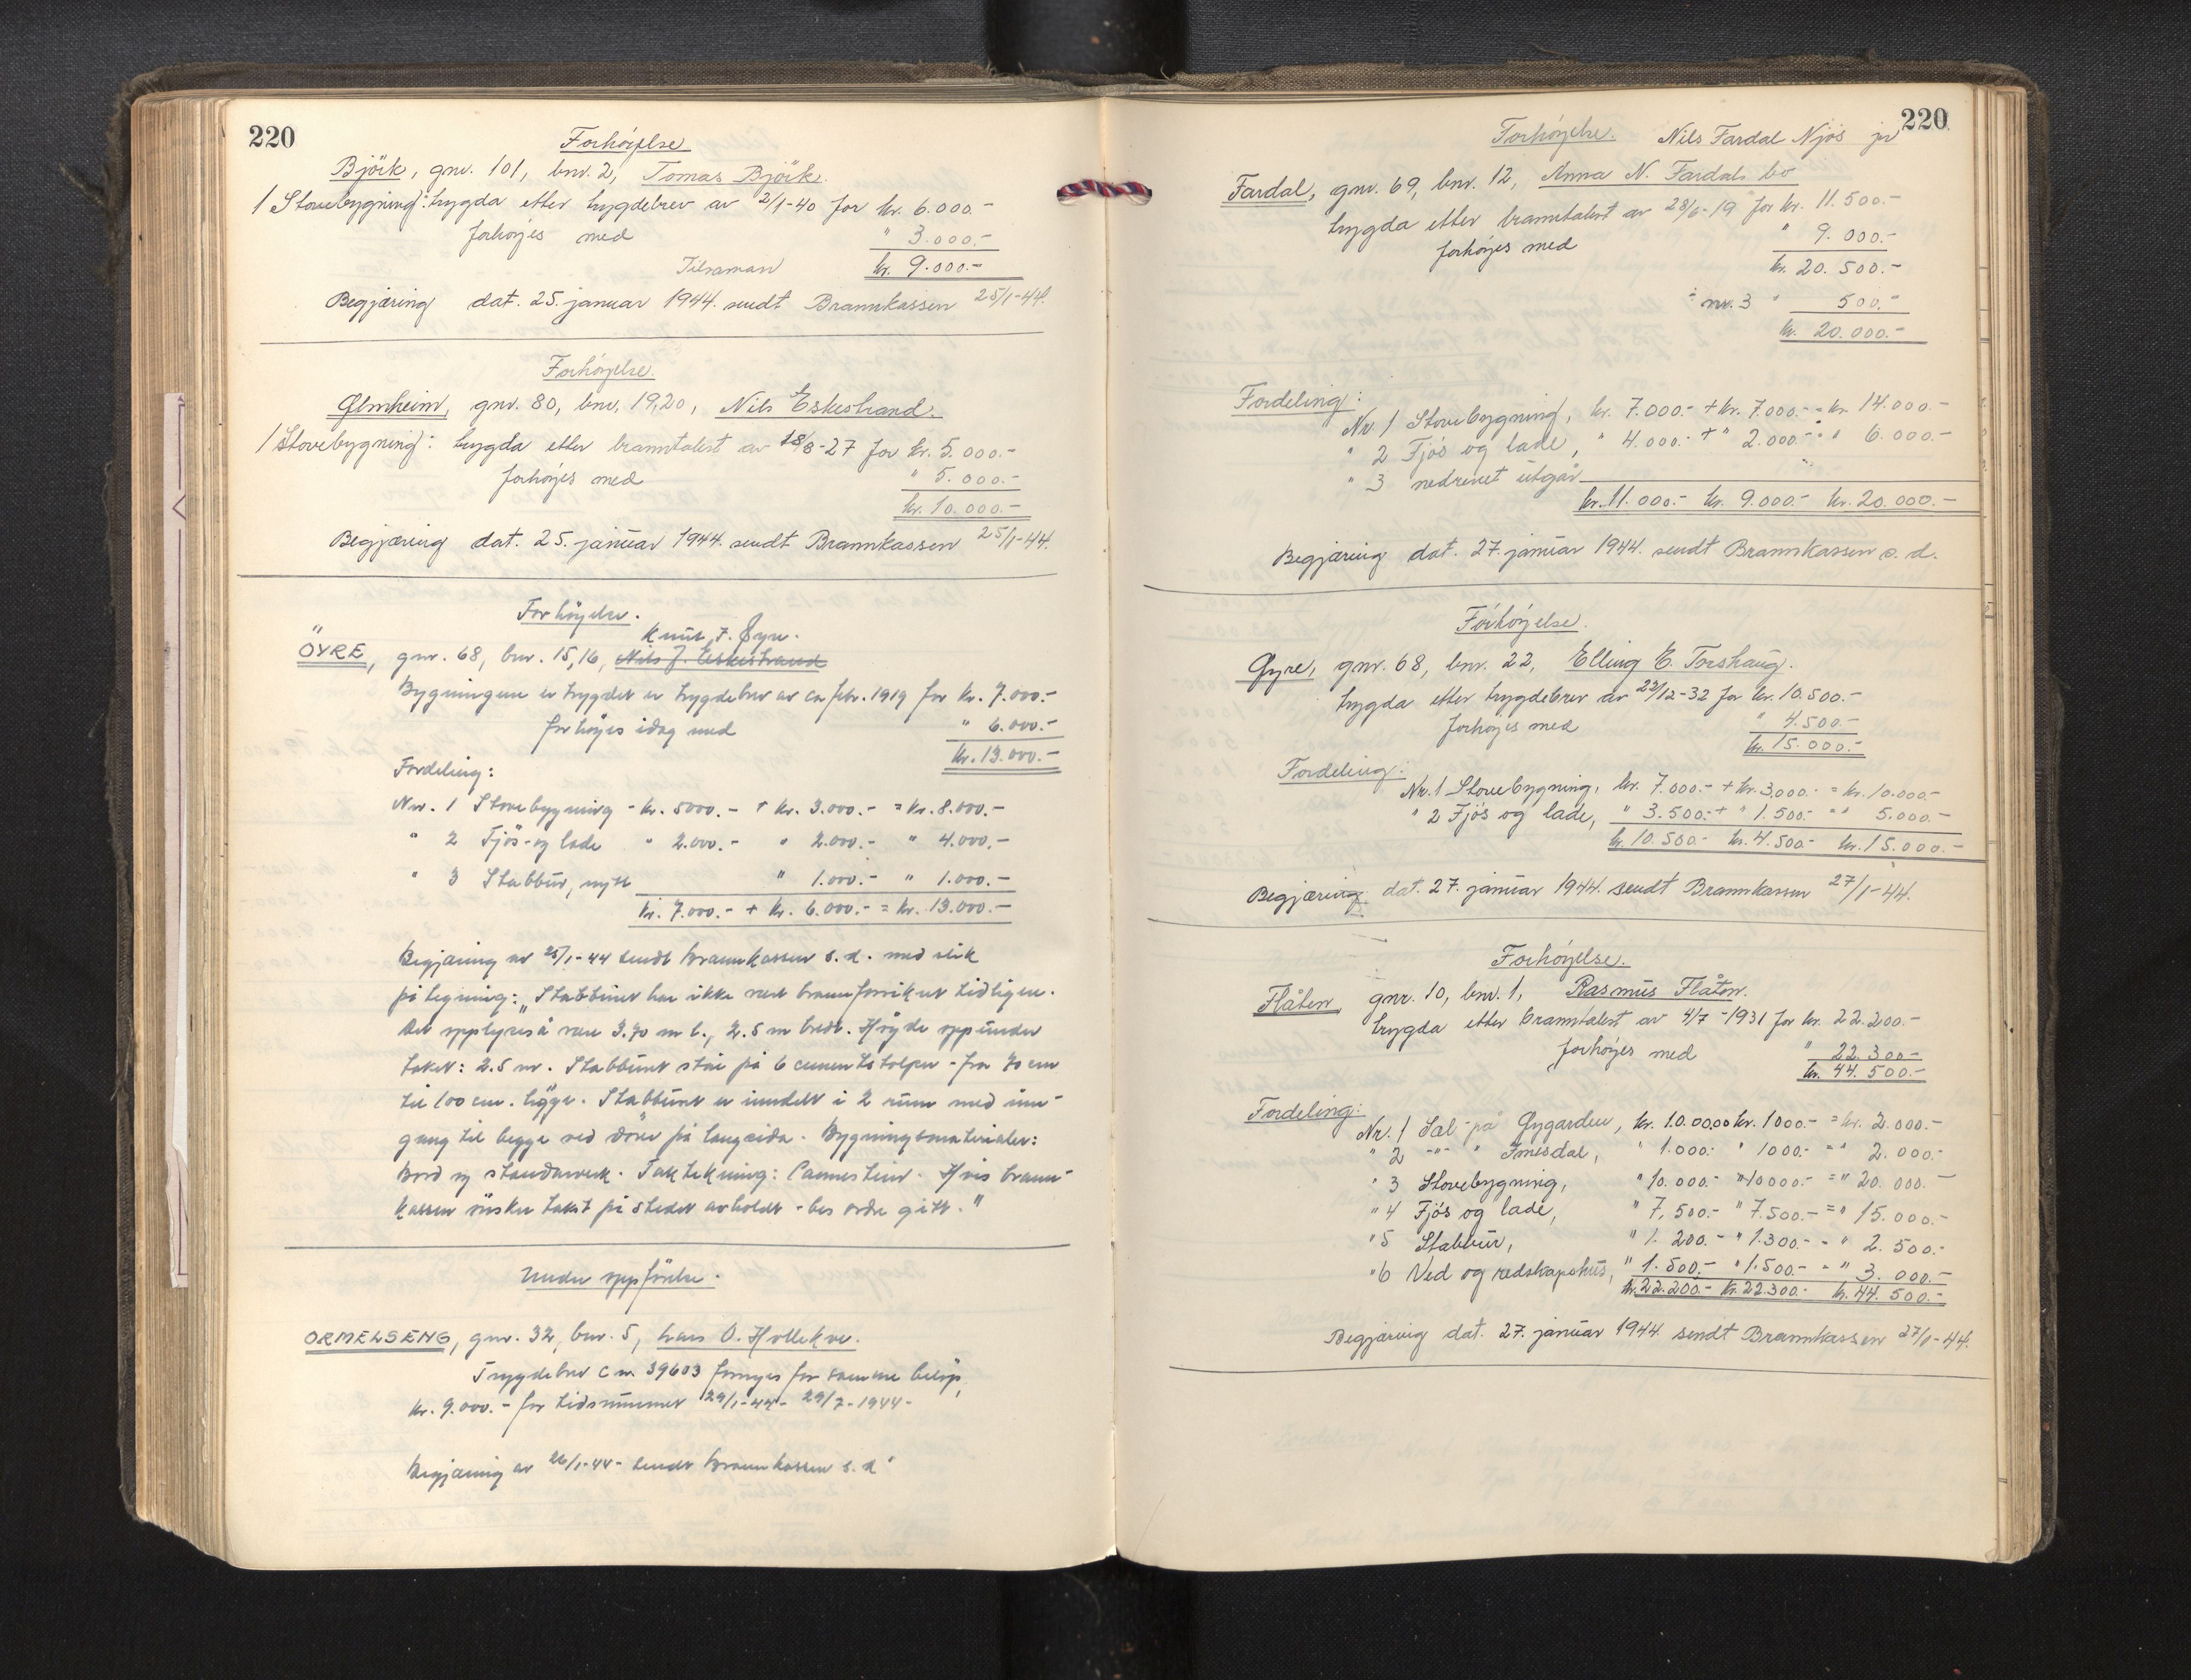 220
Forhöyelse
Björk, gnr. 101, bnr. 2, Tomas Björk.
1 Stovebygning: trygda etter trygdebrev av 2/1-40 for kr. 6.000.-
forhøyes med " 3.000.-
Tilsaman kr. 9.000.-
Begjæring dat. 25. januar 1944. sendt Brannkassen 25/1-44.
Forhöyelse.
Ølmheim, gnr. 80, bnr. 19,20, Nils Eskestrand.
1 Stovebygning: trygda etter branntakst av 18/8-27 for kr. 5.000.-
forhøyes med " 5.000.-
kr. 10.000.-
Begjæring dat. 25. januar 1944. sendt Brannkassen 25/1-44.
Forhöyelse.
Knut J. Øyre.
ÖYRE, gnr. 68, bnr. 15,16, Nils J. Eskestrand
Bygningene er trygdet er trygdebrev av ca febr. 1919 for kr. 7.000.-
forhöyes idag med " 6.000.-
kr. 13.000.-
Fordeling:
Nr. 1 Stovebygning - kr. 5000.- + kr. 3.000.- = kr. 8.000.-
" 2 Fjös- og lade " 2.000.- " 2.000.- " 4.000.-
" 3 Stabbur, nytt " 1.000.- " 1.000.-
kr. 7.000.- + kr. 6.000.- = kr. 13.000.-
Begjæring av 25/1-44 sendt brannkassen s.d. med slik
påtegning: "Stabburet har ikke vært brannforsikret tidligere.
Det opplyses å være 3.70 m l., 2.5 m bredt. Höyde opp under
taket: 2.5 m. Stabburet står på 6 cementstolper - fra 70 cm
til 100 cm. höge. Stabburet er inndelt i 2 rum med inn-
gang til begge ved dörer på langsida. Bygningsmaterialer:
Bord og standarverk. Taktekning: Cannestein. Hvis brann-
kassen önsker takst på stedet avholdt - bes ordre gitt."
Under oppförelse.
ORMELSENG, gnr. 32, bnr. 5, Lars O. Hollekve.
Trygdebrev C nr. 39603 fornyes for samme belöp,
kr. 9.000.- for tidsrummet 29/1-44 - 29/7-1944-
Begjæring av 26/1-44- sendt brannkassen s.d.
220
Forhöyelse. Nils Fardal Njös jr
Fardal, gnr. 69, bnr. 12, Anna N. Fardals bo
trygda etter branntakst av 28/6-19 for kr. 11.500.-
forhöyes med " 9.000.-
kr. 20.500.-
÷ nr. 3 " 500.-
kr. 20.000.-
Fordeling:
Nr. 1 Stovebygning, kr. 7.000.- + kr. 7.000.- = kr. 14.000.-
" 2 Fjós og lade, " 4.000.- + " 2.000.- = " 6.000.-
" 3 nedrevet utgår
kr. 11.000.- kr. 9.000.- kr. 20.000.-
Begjæring dat. 27. januar 1944. sendt Brannkassen s.d.
Forhöyelse.
Øyre, gnr. 68, bnr. 22, Elling E. Torshaug.
trygda etter trygdebrev av 23/12-32 for kr. 10.500.-
forhøyes med " 4.500.-
kr. 15.000.-
Fordeling:
Nr. 1 Stovebygning, kr. 7.000.- + kr. 3.000.- = kr. 10.000.-
" 2 Fjós og lade, " 3.500.- + " 1.500.- = " 5.000.-
kr. 10.500.- kr. 4.500.- kr. 15.000.-
Begjæring dat. 27. januar 1944. sendt Brannkassen 27/1-44.
Forhöyelse.
Flåten gnr. 10, bnr. 1, Rasmus Flåten.
trygda etter branntakst av 4/7-1931 for kr. 22.200.-
forhøyes med " 22.300.-
kr. 44.500.-
Fordeling:
Nr. 1 Sæl på Øygarden, kr. 1.000.00 kr. 1000.- = kr. 2.000.-
" 2 -"- " Imesdal, " 1.000.- " 1000.- = " 2.000.-
" 3 Stovebygning, " 10.000.- " 10000.- = " 20.000.-
" 4 Fjós og lade, " 7,500.- " 7.500.- = " 15.000.-
" 5 Stabbur, " 1.200.- " 1.300.- = " 2.500.-
" 6 Ved og redskapshus, " 1.500.- " 1.500.- = " 3.000.-
kr. 22.200.- kr. 22.300.- kr. 44.500.-
Begjæring dat. 27. januar 1944. sendt Brannkassen 27/1-44.